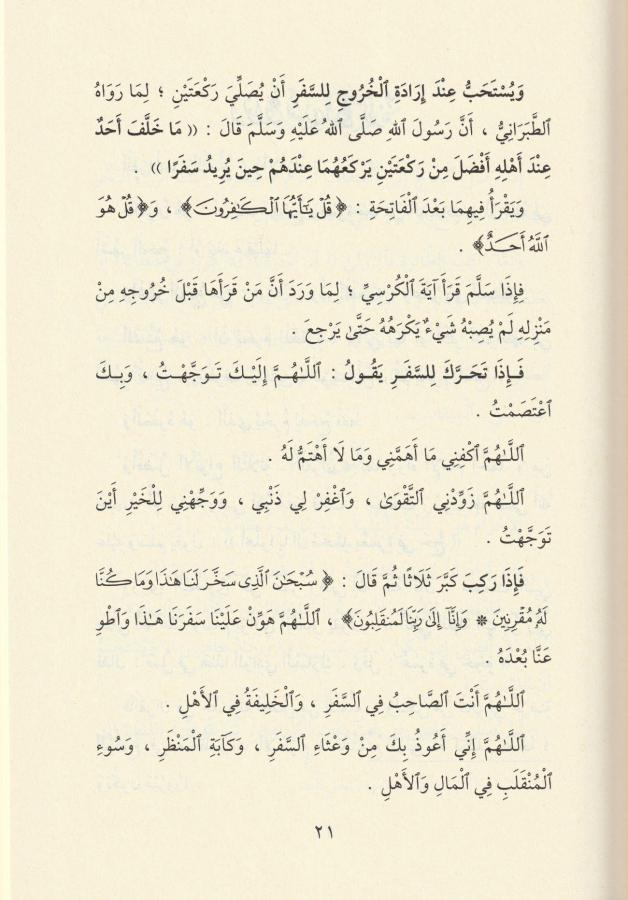 وَيُسْتَحَبُّ عِنْدَ إِرَادَةِ ٱلْخُرُوجِ لِلسَّفَرِ أَنْ يُصَلِّيَ رَكْعَتَيْنِ ؛ لِمَا رَوَاهُ
ٱلطَّبَرَانِيُّ ، أَنَّ رَسُولَ ٱللهِ صَلَّى ٱللهُ عَلَيْهِ وَسَلَّمَ قَالَ : (( مَا خَلَّفَ أَحَدٌ
عِنْدَ أَهْلِهِ أَفْضَلَ مِنْ رَكْعَتَيْنِ يَرْكَعُهُمَا عِنْدَهُمْ حِينَ يُرِيدُ سَفَرًا )) .
وَيَقْرَأُ فِيهِمَا بَعْدَ ٱلْفَاتِحَةِ : ﴿ قُلْ يَـٰٓأَيُّهَا ٱلْكَـٰفِرُونَ﴾ ، وَ﴿ قُلْ هُوَ
ٱللَّهُ أَحَدٌ﴾ .
فَإِذَا سَلَّمَ قَرَأَ آيَةَ ٱلْكُرْسِيِّ ؛ لِمَا وَرَدَ أَنَّ مَنْ قَرَأَهَا قَبْلَ خُرُوجِهِ مِنْ
مَنْزِلِهِ لَمْ يُصِبْهُ شَيْءٌ يَكْرَهُهُ حَتَّىٰ يَرْجِعَ .
فَإِذَا تَحَرَّكَ لِلسَّفَرِ يَقُولُ : ٱللَّـٰهُمَّ إِلَيْكَ تَوَجَّهْتُ ، وَبِكَ
ٱعْتَصَمْتُ .
ٱللَّـٰهُمَّ ٱكْفِنِي مَا أَهَمَّنِي وَمَا لَا أَهْتَمُّ لَهُ .
ٱللَّـٰهُمَّ زَوِّدْنِي ٱلتَّقْوَىٰ ، وَٱغْفِرْ لِي ذَنْبِي ، وَوَجِّهْنِي لِلْخَيْرِ أَيْنَ
تَوَجَّهْتُ .
فَإِذَا رَكِبَ كَبَّرَ ثَلَاثًا ثُمَّ قَالَ : ﴿ سُبْحَـٰنَ ٱلَّذِى سَخَّرَ لَنَا هَـٰذَا وَمَا كُنَّا
لَهُۥ مُقْرِنِينَ * وَإِنَّآ إِلَىٰ رَبِّنَا لَمُنقَلِبُونَ﴾ ، ٱللَّـٰهُمَّ هَوِّنْ عَلَيْنَا سَفَرَنَا هَـٰذَا وَٱطْوِ
عَنَّا بُعْدَهُ .
ٱللَّـٰهُمَّ أَنْتَ ٱلصَّاحِبُ فِي ٱلسَّفَرِ ، وَٱلْخَلِيفَةُ فِي ٱلأَهْلِ .
ٱللَّـٰهُمَّ إِنِّي أَعُوذُ بِكَ مِنْ وَعْثَاءِ ٱلسَّفَرِ ، وَكَآبَةِ ٱلْمَنْظَرِ ، وَسُوءِ
ٱلْمُنْقَلَبِ فِي ٱلْمَالِ وَٱلأَهْلِ .
٢١